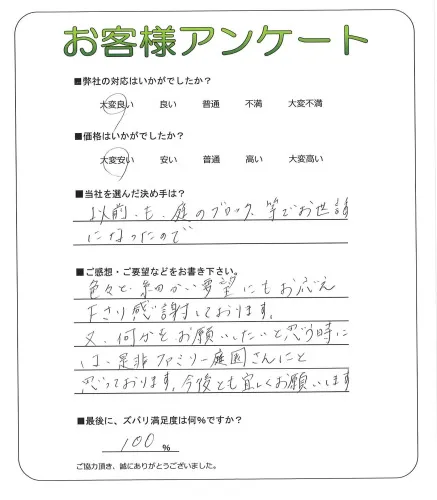 お客様アンケート
■弊社の対応はいかがでしたか？
大変良い 良い 普通 不満 大変不満
■価格はいかがでしたか？
大変安い 安い 普通 高い 大変高い
■当社を選んだ決め手は？
以前、も、庭のブロック、等でお世話
になったので
■ご感想・ご要望などをお書き下さい。
色々と細かい要望にもお応え
下さり感謝しております。
又、何かをお願いしたいと思う時に
は、是非ファミリー庭園さんにと
思っております。今後とも宜しくお願いします
■最後に、ズバリ満足度は何%ですか？
100 %
ご協力頂き、誠にありがとうございました。